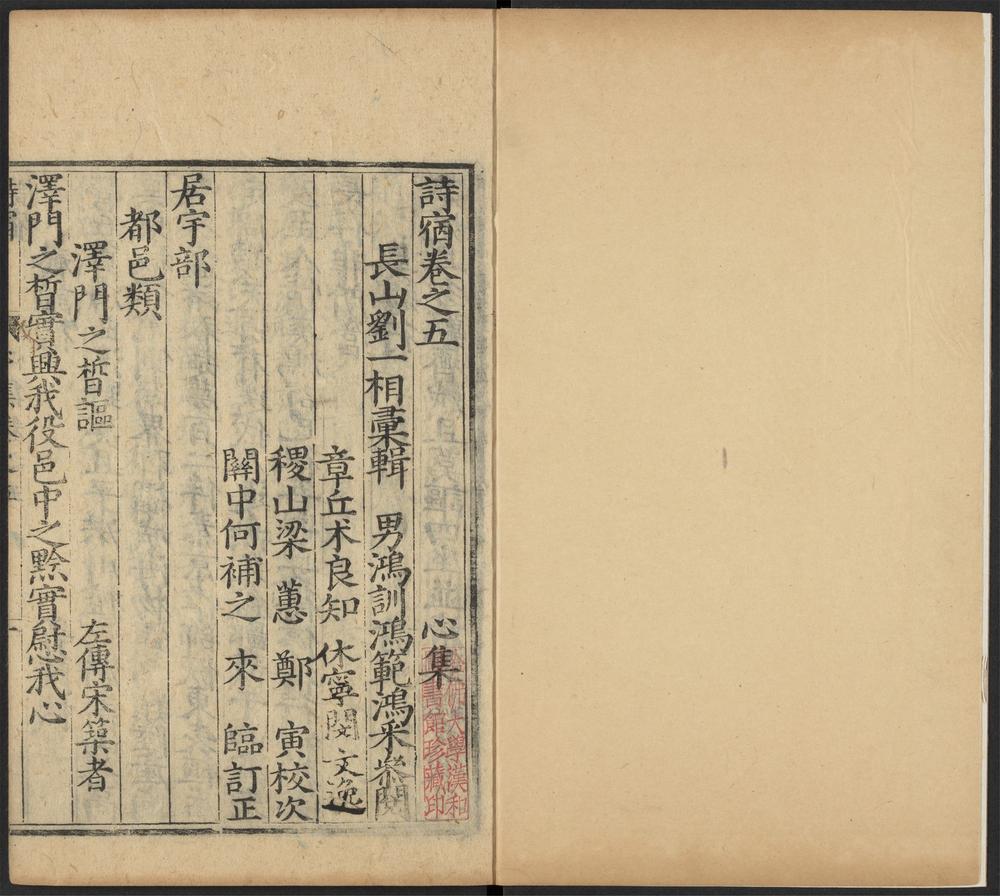 詩宿卷之五 心集
長山劉一相彙輯 男鴻訓鴻範鴻采叅閱
章丘术良知 休寧閔文逸
稷山梁蕙 鄭寅校次
關中何補之 來臨訂正
居宇部
都邑類
澤門之晳謳 左傳宋築者
澤門之晳實興我役邑中之黔實慰我心
大學漢和
書館珍藏印